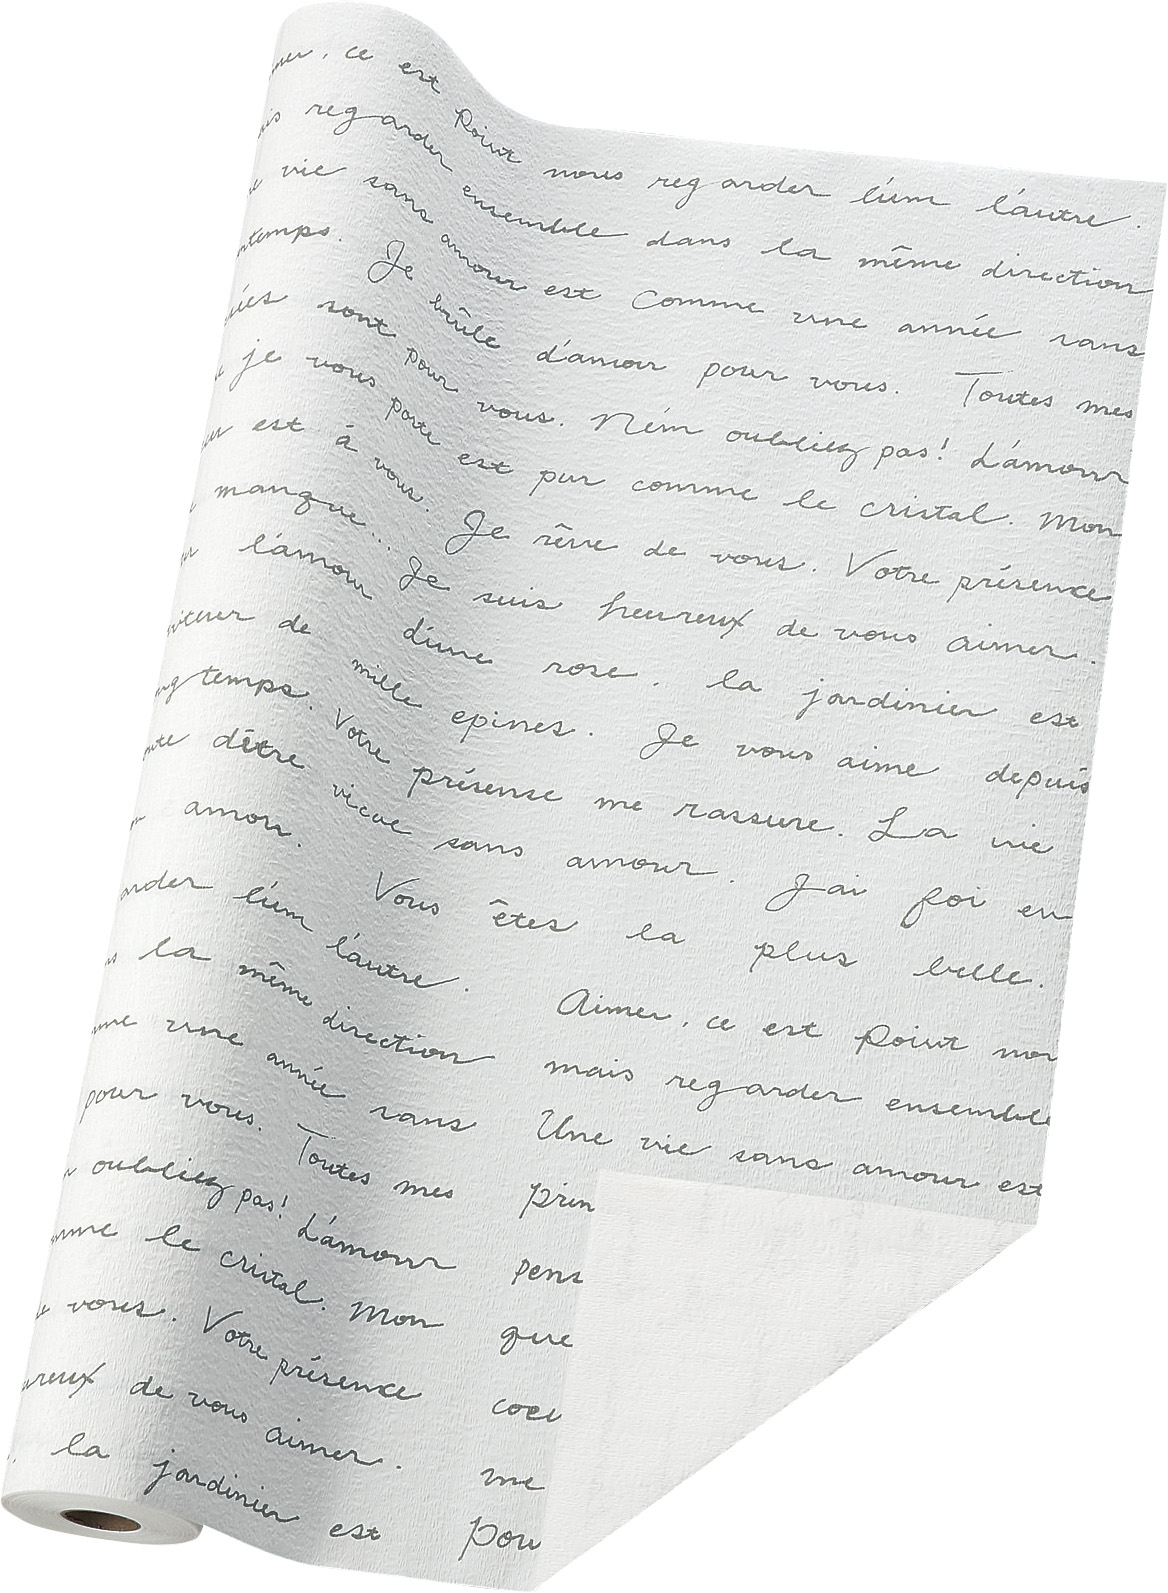 ce est point nous regarder l'um l'autre.
regarder ensemble dans la même direction
vie sans amour est comme une année sans
Je brûle d'amour pour vous. Toutes mes
sont pour vous. N'ém oubliez pas! L'amour
je vous porte est pur comme le cristal. Mon
est à vous. Je rêve de vous. Votre présence
manque... Je suis heureux de vous aimer.
l'amour d'une rose, la jardinier est
de mille epines. Je vous aime depuis
temps. Votre présense me rassure. La vie
d'être vicue sans amour. J'ai foi en
amour. Vous êtes la plus belle.
l'um l'autre. Aimer, ce est point nou
la même direction mais regarder ensemble
une année sans Une vie sans amour est
pour vous. Toutes mes prin
oubliez pas! L'amour pens
le cristal. Mon que
vous. Votre présence coeu
de vous aimer. me
la jardinier est pou